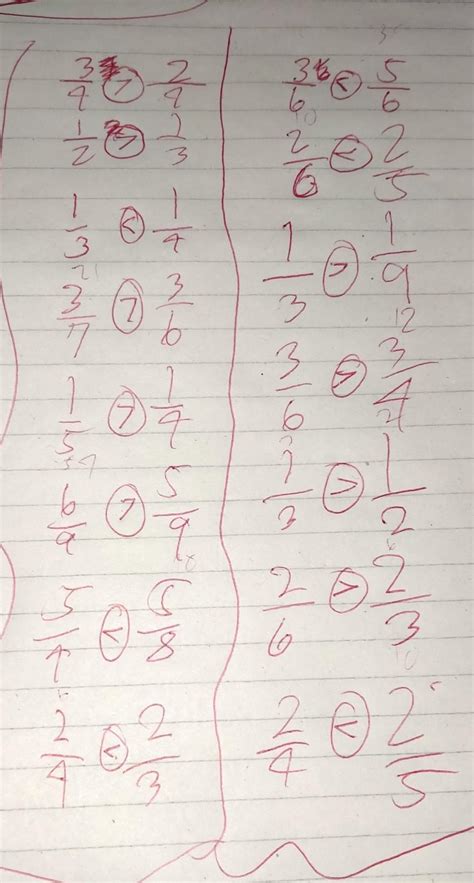 3/4 > 2/4
1/2 > 1/3
1/3 < 1/4
3/7 > 3/6
1/5 > 1/4
6/9 > 5/9
5/9 < 5/8
2/4 < 2/3
3/6 < 5/6
2/6 < 2/5
1/3 > 1/9
3/6 > 3/4
1/3 > 1/2
2/6 > 2/3
2/4 < 2/5